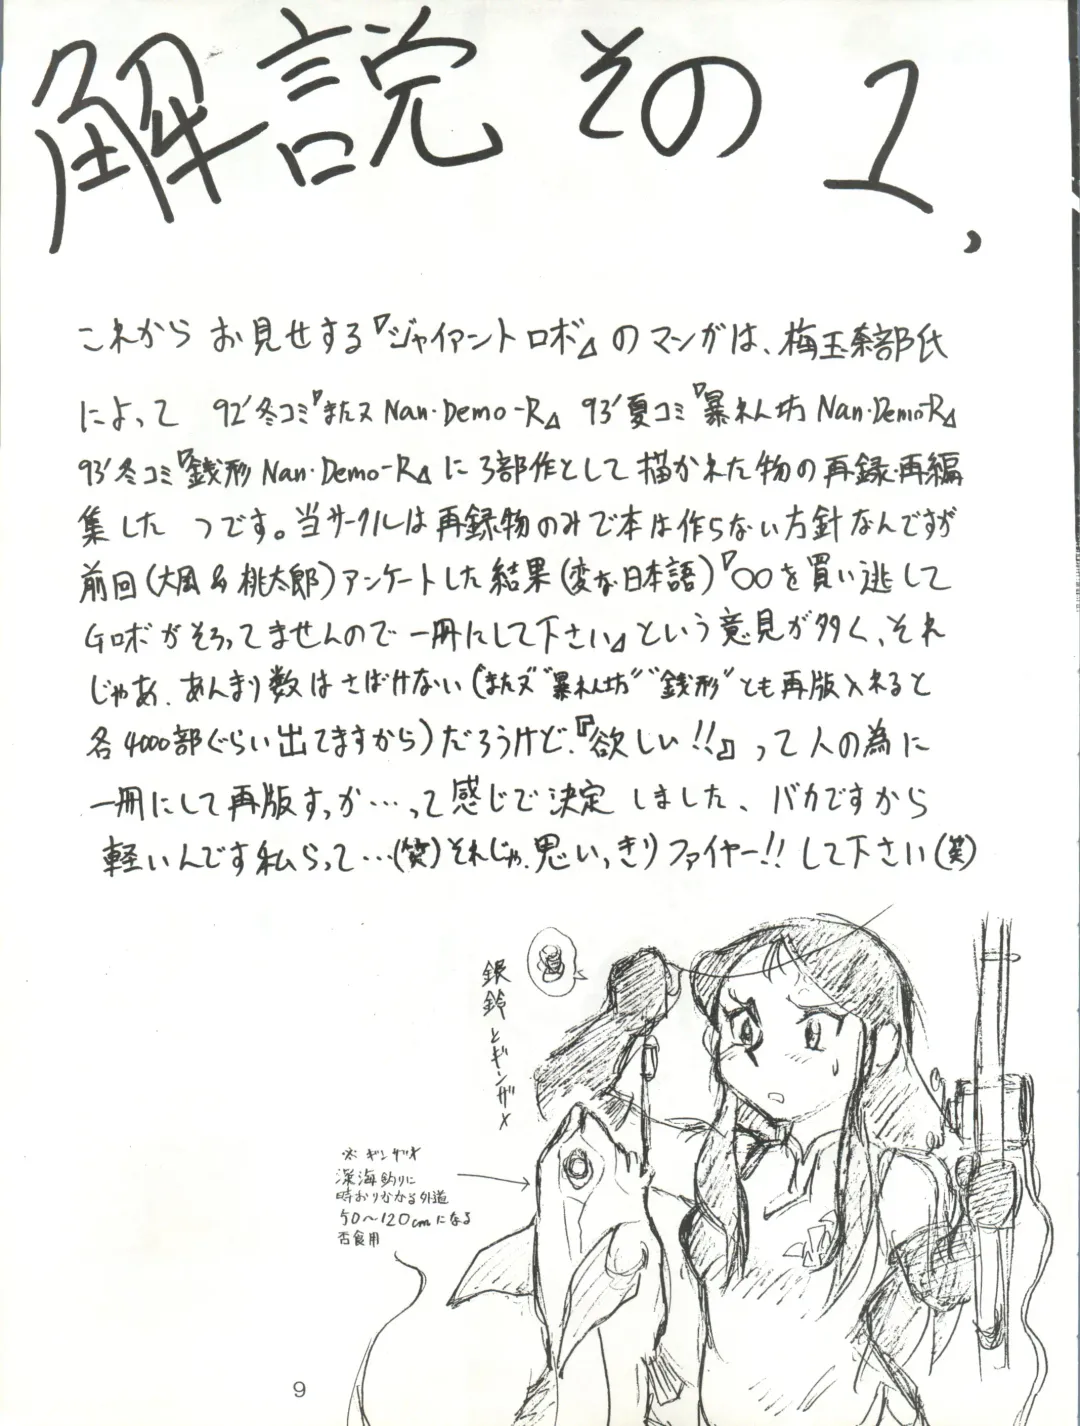 解説 その 1,
これから お見せする『ジャイアント ロボ』のマンガは、梅玉奈部氏
によって 92'冬コミ『またヌ Nan・Demo-R』 93'夏コミ『暴れん坊 Nan・Demo-R』
93'冬コミ『銭形 Nan・Demo-R』に3部作として描かれた物の再録・再編
集した つです。当サークルは再録物のみで本は作らない方針なんですが
前回(大風&桃太郎)アンケートした結果(変な日本語)『○○を買い逃して
Gロボがそろってませんので一冊にして下さい』という意見が多く、それ
じゃあ、あんまり数はさばけない("またヌ""暴れん坊""銭形"とも再版入れると
各4000部ぐらい出てますから)だろうけど、『欲しい!!』って人の為に
一冊にして再版すっか…って感じで決定しました、バカですから
軽いんです私らって…(笑)それじゃ、思いっきりファイヤー!!して下さい(笑)
銀鈴とギンザメ
※ギンザメ
深海釣りに
時おりかかる外道
50〜120cmになる
否食用
9